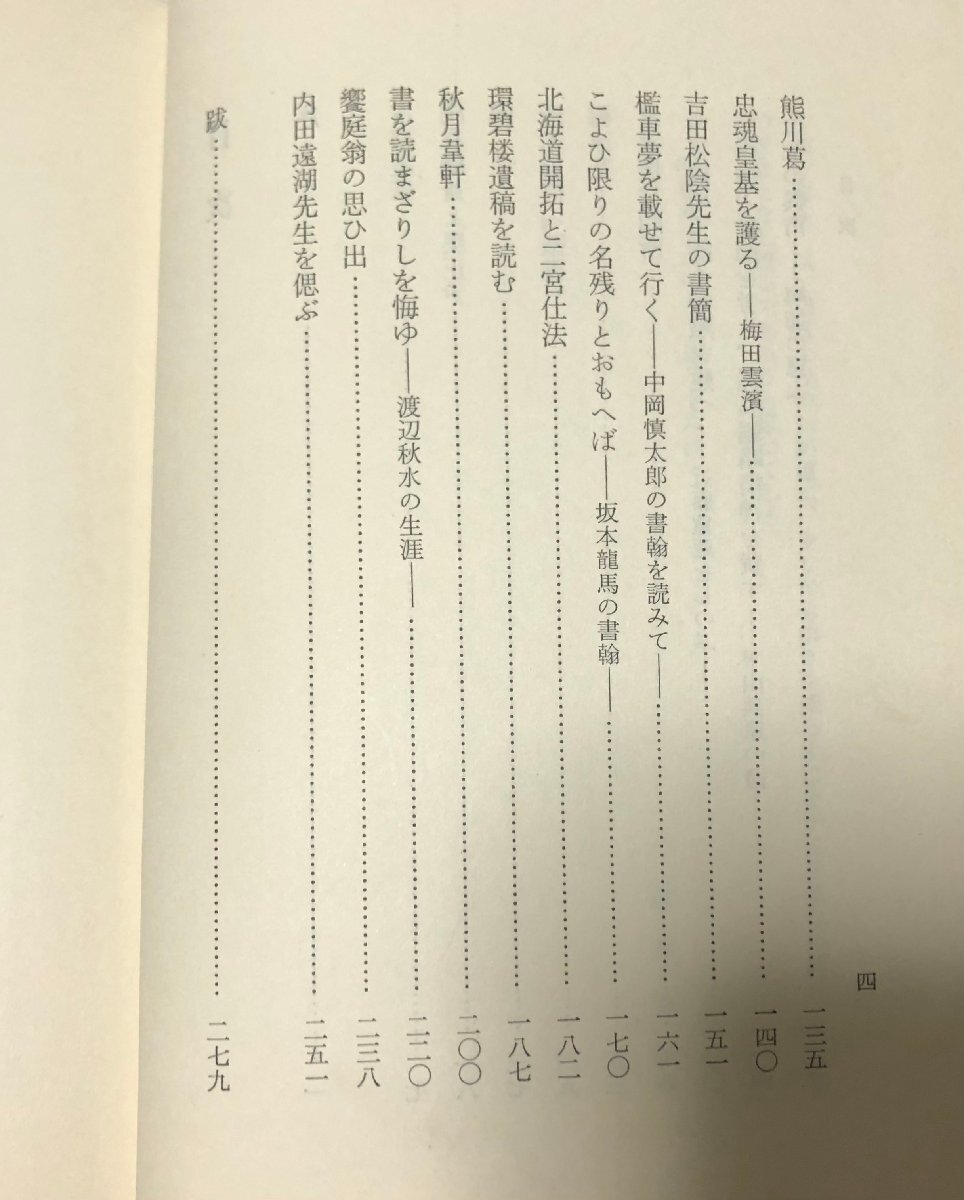 四
熊川葛……………………一三五
忠魂皇基を護る――梅田雲濱――……………………一四〇
吉田松陰先生の書簡……………………一五一
檻車夢を載せて行く――中岡慎太郎の書翰を読みて――……………………一六一
こよひ限りの名残りとおもへば――坂本龍馬の書翰――……………………一七〇
北海道開拓と二宮仕法……………………一八二
環碧楼遺稿を読む……………………一八七
秋月韋軒……………………二〇〇
書を読まざりしを悔ゆ――渡辺秋水の生涯――……………………二二〇
饗庭翁の思ひ出……………………二三八
内田遠湖先生を偲ぶ……………………二五一
跋……………………二七九